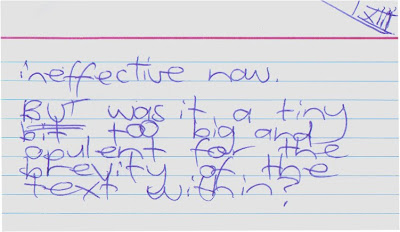 xiii
ineffective now.
BUT was it a tiny
bit too big and
opulent for the
brevity of the
text within?